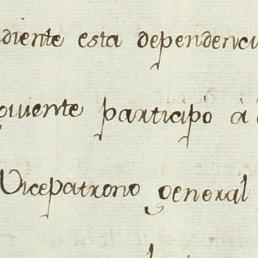 diente esta dependenci
guiente participó à
Vicepatrono general